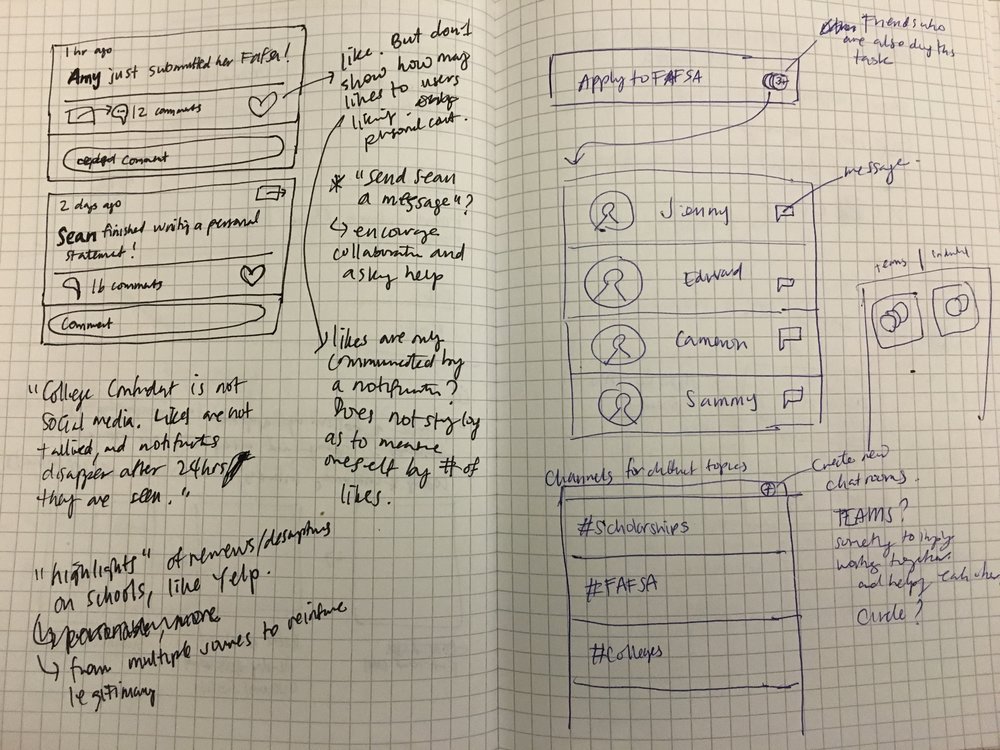 1 hr ago
Amy just submitted her Fafsa!
12 comments
comment
2 days ago
Sean finished writing a personal
statement!
16 comments
Comment
like. But don't
show how many
likes to users
liking
personal
* "Send Sean
a message"?
↳ encourage
collaboration and
asking help
likes are only
communicated by
a notification?
Does not stay long
as to measure
oneself by # of
likes.
"College is not
social media. Likes are not
tallied, and notifications
disappear after 24hrs
they are seen."
"highlights" of reviews/descriptions
on schools, like Yelp.
↳ more
↳ from multiple sources to reinforce
legitimacy
Friends who
are also doing this
task
Apply to FAFSA
3+
message
Jienny
Edward
Cameron
Sammy
Teams | Individual
Channels for distinct topics
+
Create new
chatrooms.
#Scholarships
#FAFSA
#Colleges
TEAMS?
something to imply
working together
and helping each other
Circle?